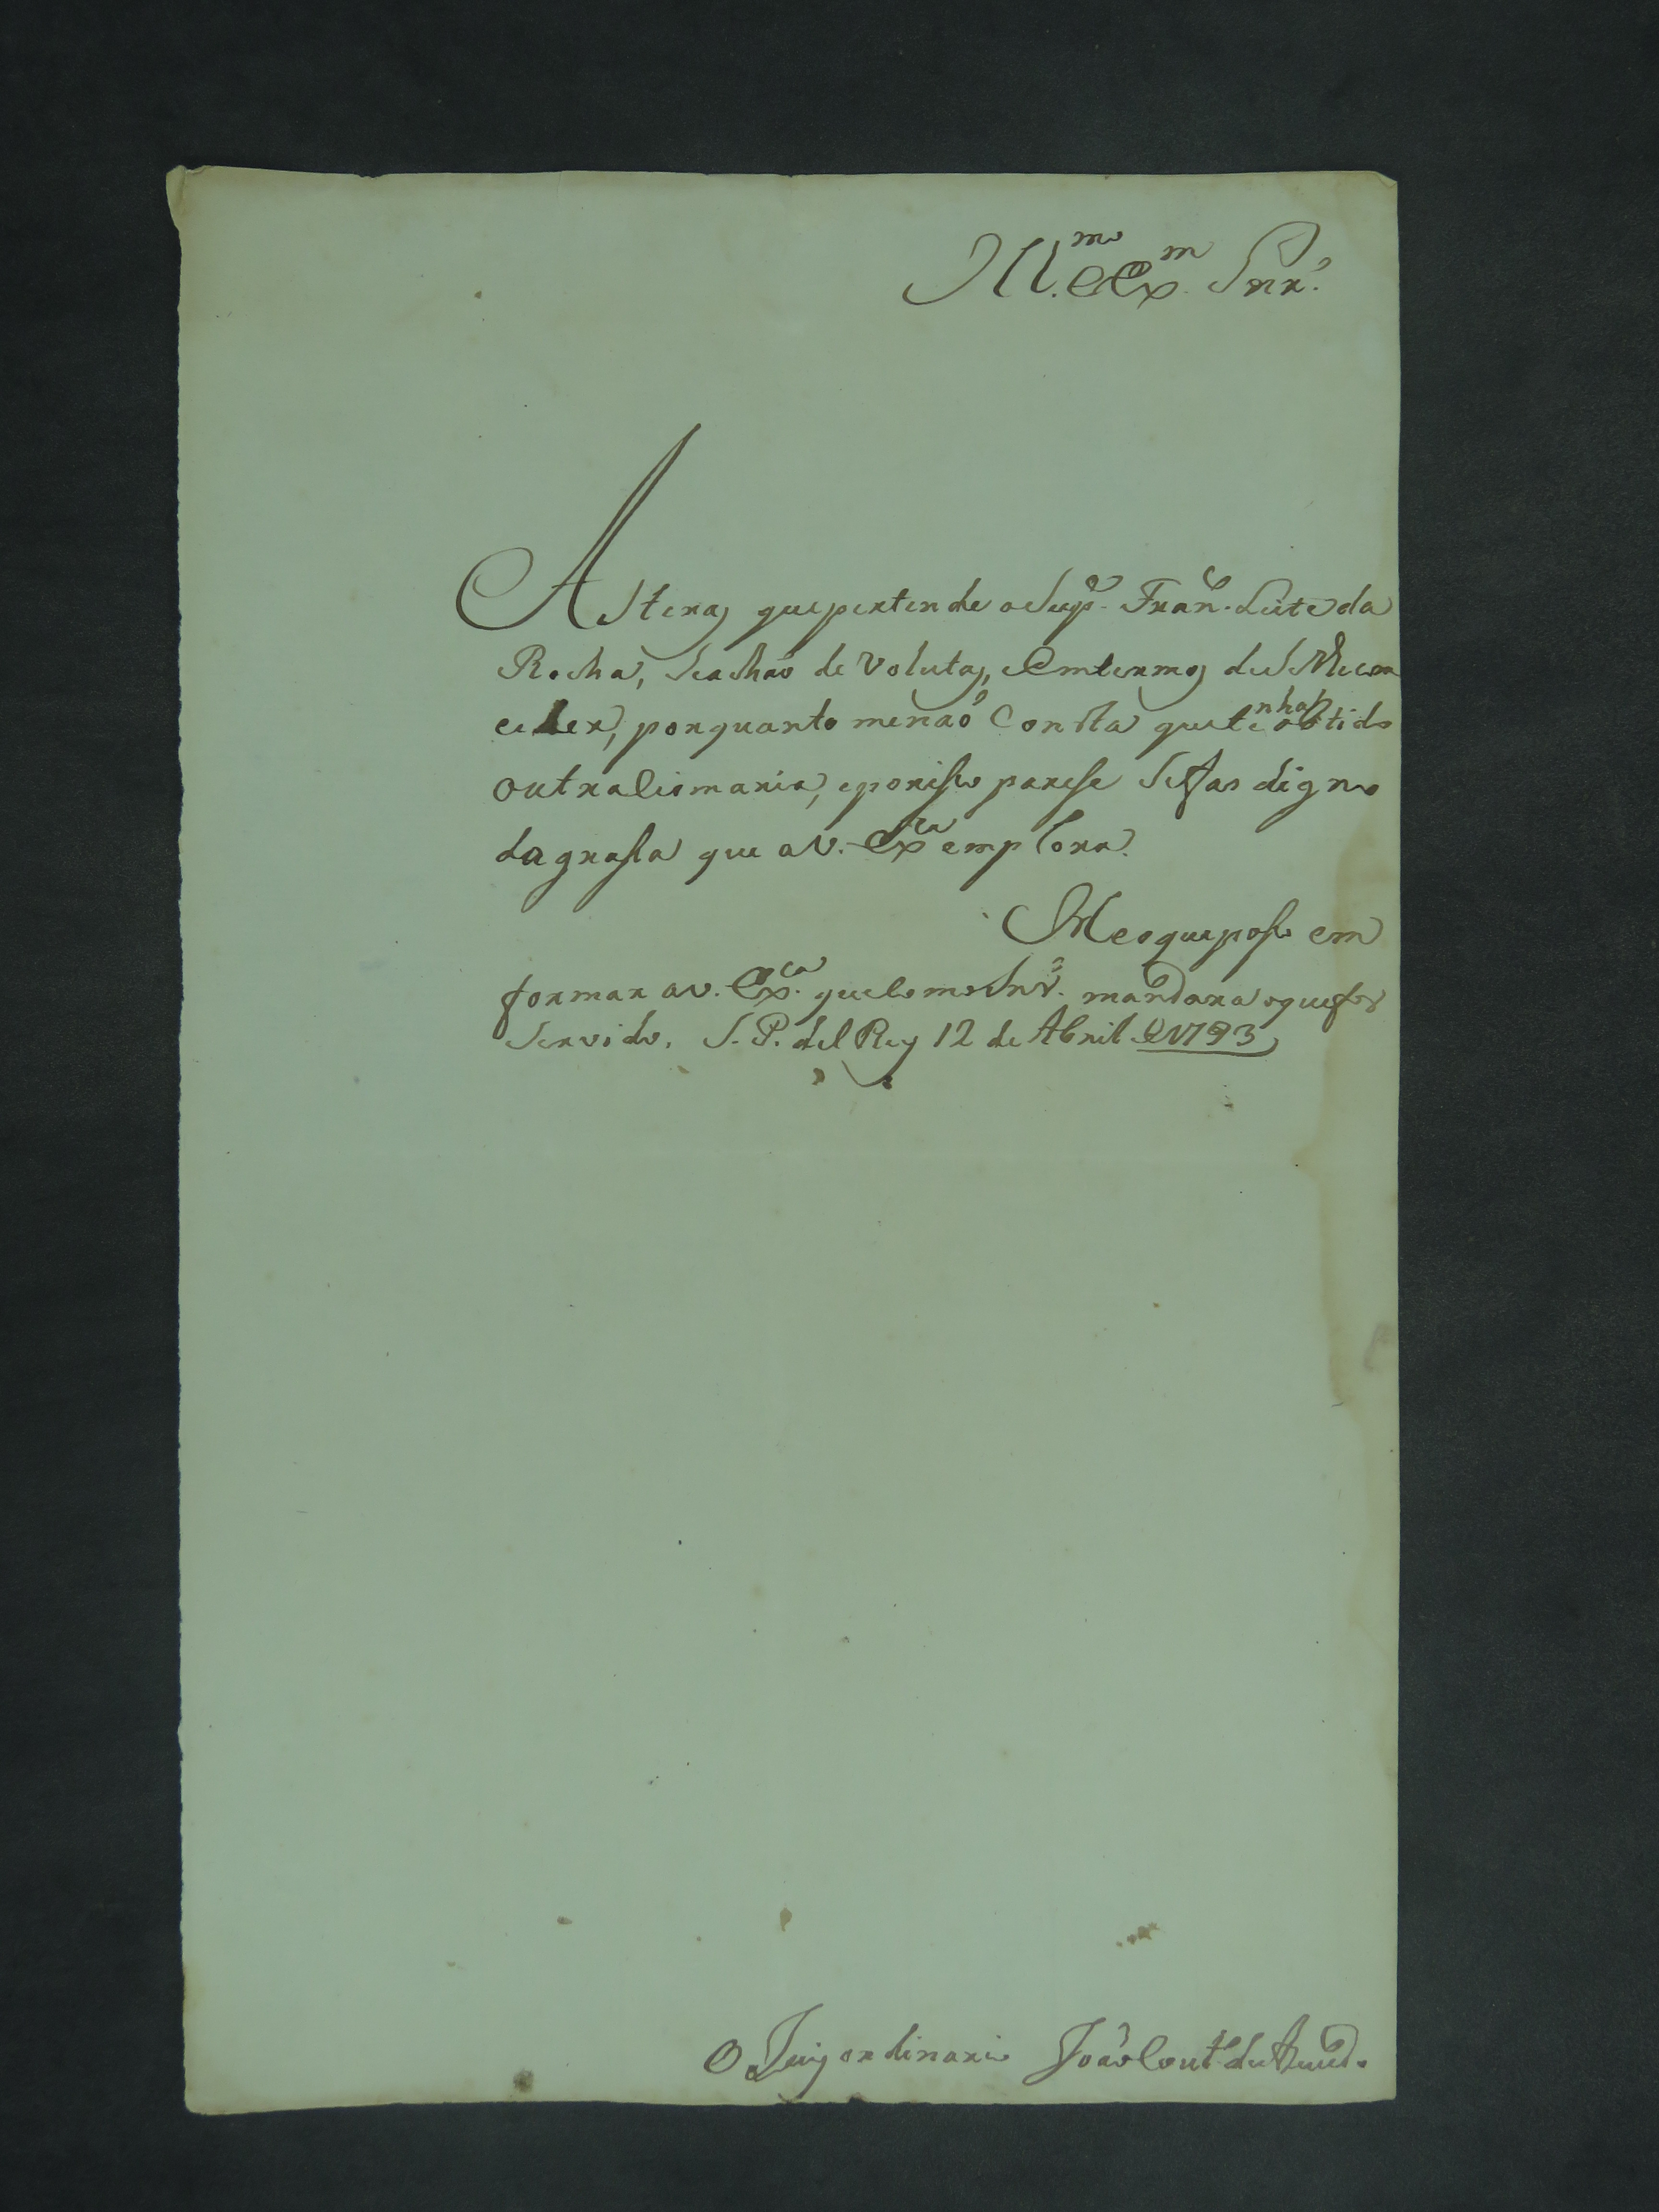 Ill.mo e Ex.m Snr.
As teras que pertende o Sup.e Fran.co Leite da
Rocha, se achaõ de volutas, e em termos de se lhe con
ceder, porquanto me naõ Consta que tenha obtido
outra Cismaria, e por isso parese se fas digno
da grasa que a V. Ex.ca emplora.
He o que poso em
formar a V. Ex.ca que como Snr. mandara o que for
servido. S. P. del Rey 12 de Abril de 1793
O Juiz ordinario Joaõ Cout.o de